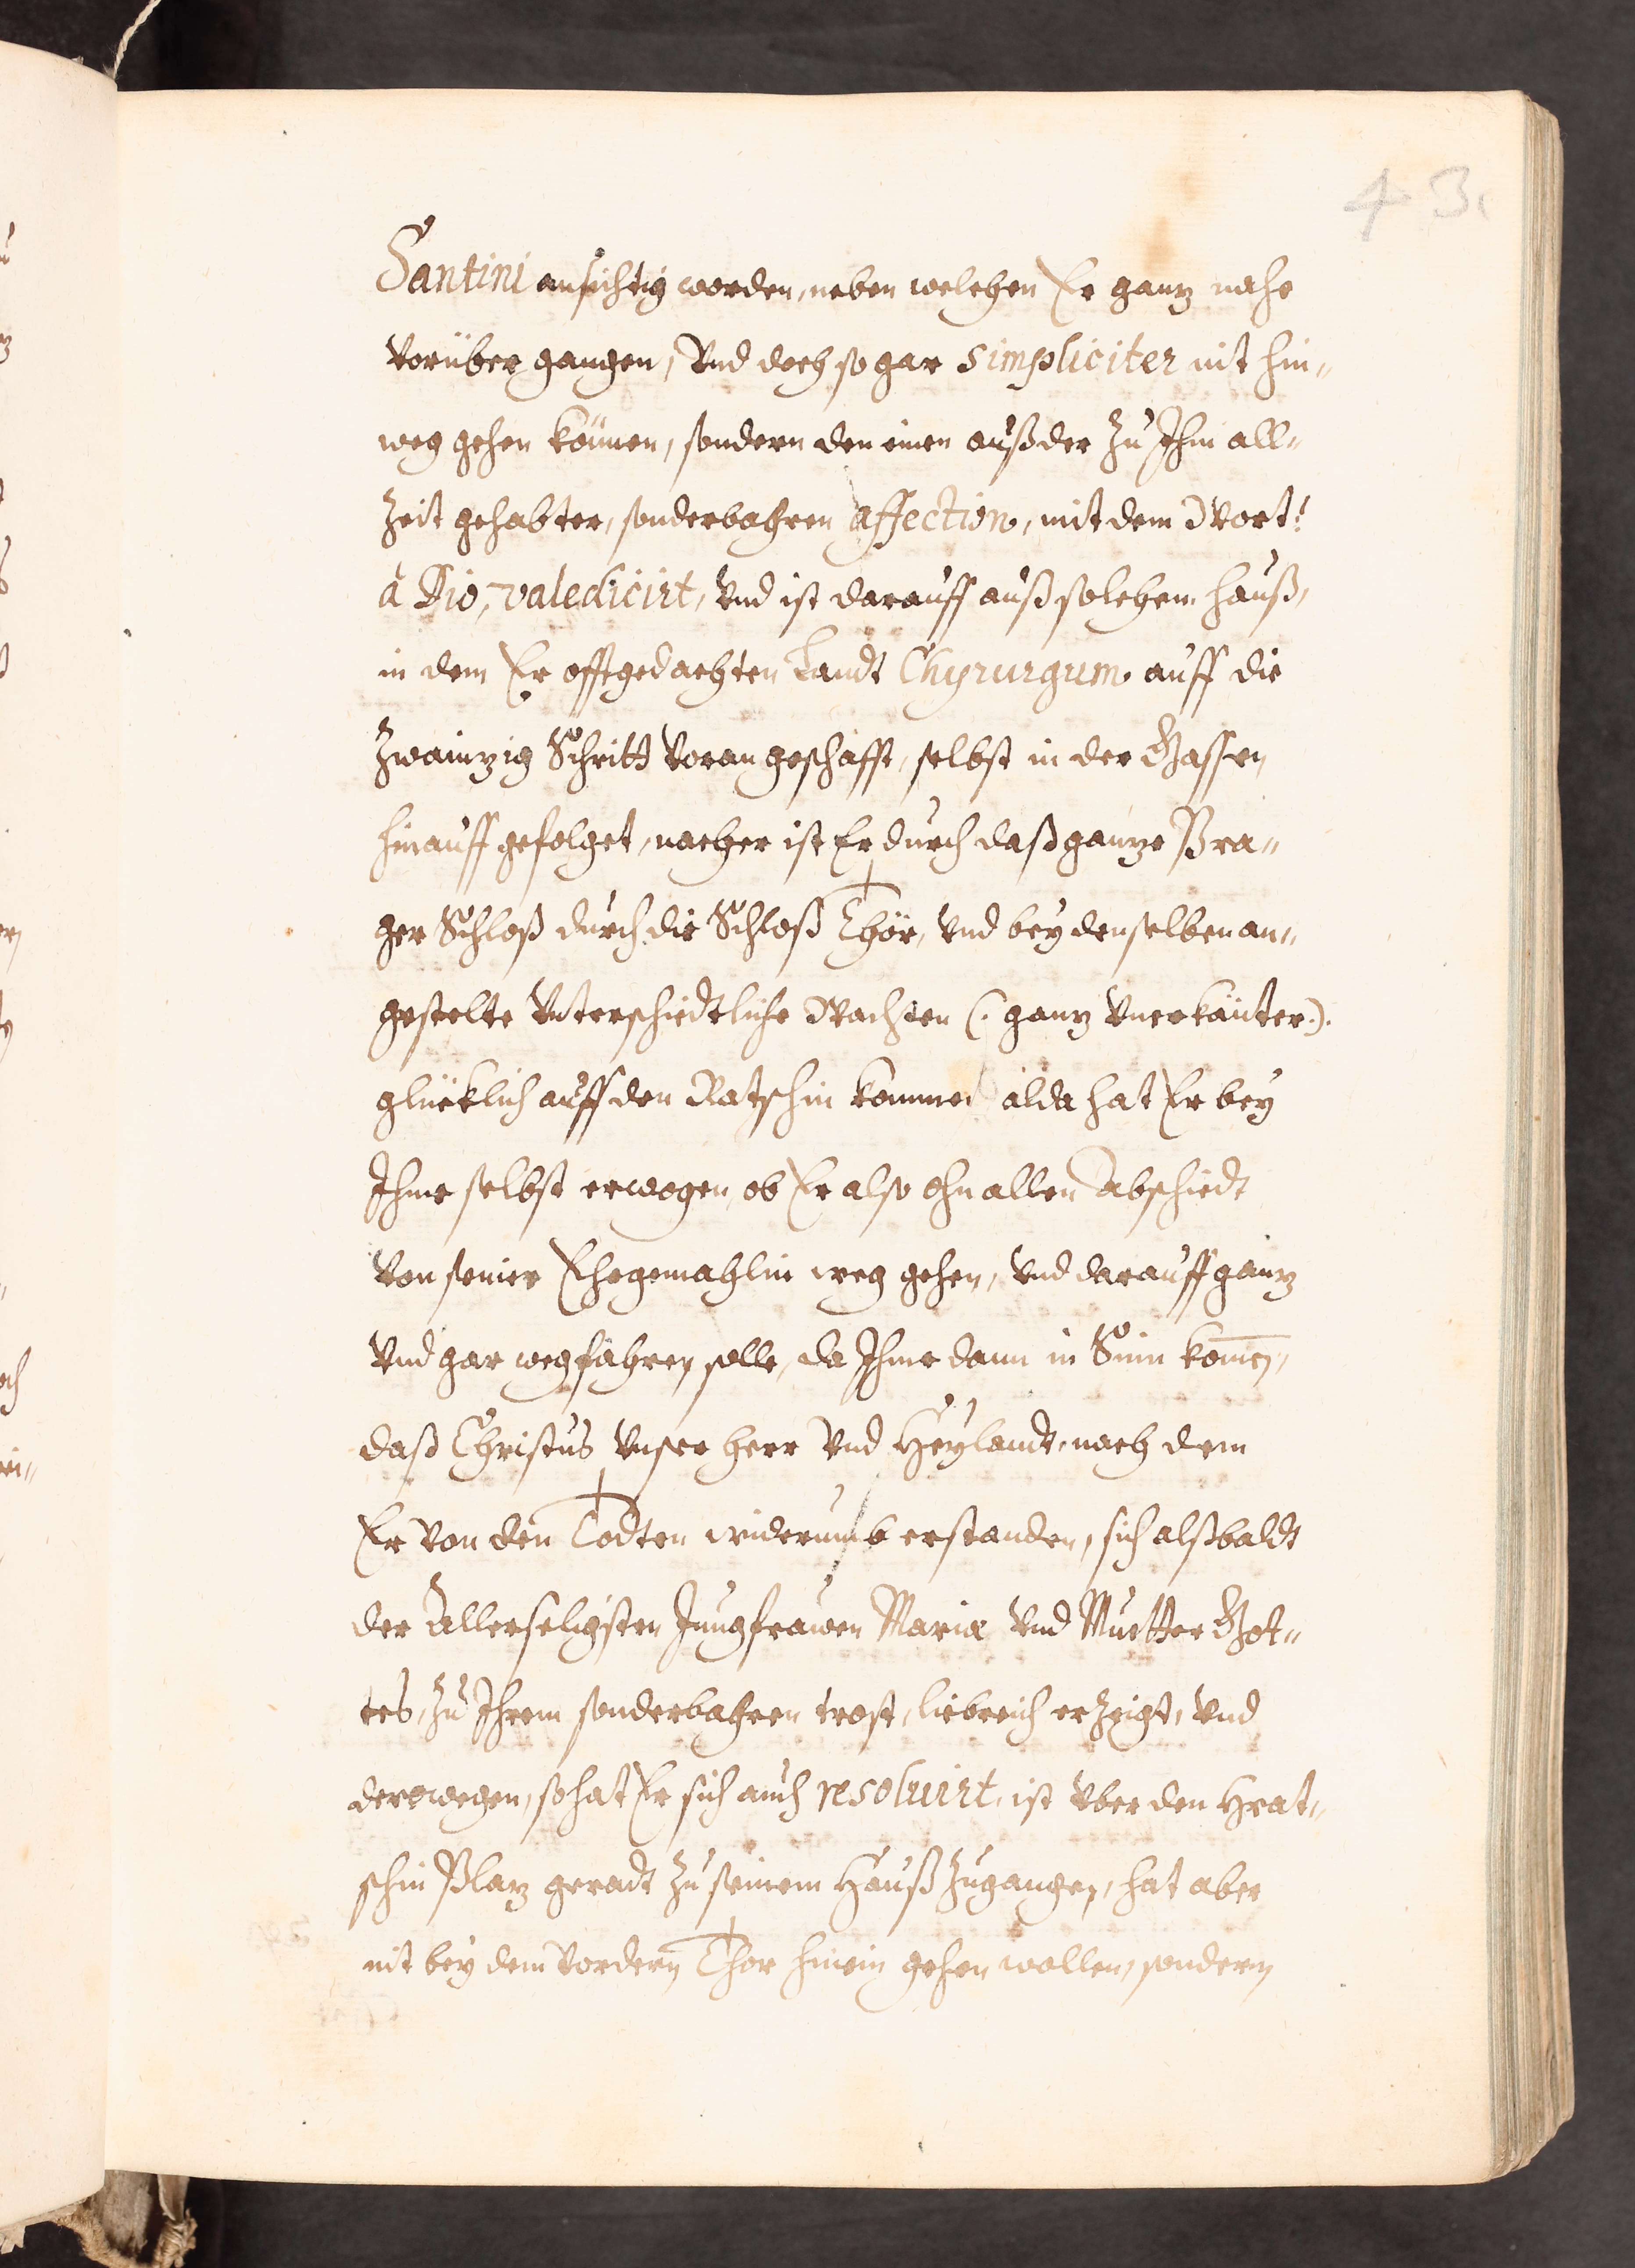 43.
Santini ansichtig worden, neben welchen Er ganz nahe
vorüber gangen, Vnd doch so gar simpliciter nit hin„
weg gehen können, sondern den einen auß der zu Ihm all„
zeit gehabter, sonderbahren affection, mit dem Wort:
à Dio, valedicirt, Vnd ist darauff auß solchem hauß,
in dem Er offtgedachten Landt Chyrurgum auff die
zwainzig Schritt voran geschafft, selbst in der Gassen
hinauff gefolget, nacher ist Er durch daß ganze Pra„
ger Schloß durch die Schloß Thör, Vnd bey denselben an„
gestelte Vnterschiedtliche Wachten (: ganz Vnerkänter:).
glücklich auff den Ratschin kommen alda hat Er bey
Ihme selbst erwogen, ob Er also ohn allen Abschiedt
von seiner Ehegemahlin weg gehen, Vnd darauff ganz
Vnd gar wegfahren solle, da Ihme dann in Sinn kom̄en,
daß Christus Vnser herr Vnd Heylandt, nach dem
Er von den Todten widerumb erstanden, sich alßbaldt
der Allerseligsten Jungfrawen Mariæ Vnd Muetter Got„
tes, zu Ihrem sonderbahren trost, liebreich erzeigt, Vnd
derowegen, so hat Er sich auch resoluirt, ist Vber den Hrat„
schin Plaz geradt zu seinem Hauß zugangen, hat aber
nit bey dem vordern Thor hinein gehen wollen, sondern